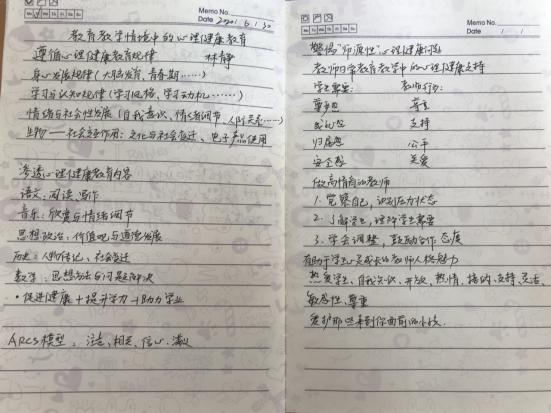 Memo No.
Date 2020 / 6 / 30
教育教学情境中的心理健康教育
遵循心理健康教育规律 林静
身心发展规律（大脑发育,青春期……）
学习与认知规律（学习风格,学习动机……）
情绪与社会性发展（自我意识、情绪调节、人际关系…）
生物——社会交互作用：文化与社会变迁、电子产品使用
渗透心理健康教育内容
语文:阅读、写作
音乐:欣赏与情绪调节
思想政治:价值观与道德发展
历史:人物传记、社会变迁
数学:思想方法与问题解决
·促进健康+提升学力→助力学业
ARCS模型：注意、相关、信心、满意
Memo No.
Date / /
警惕“师源性”心理健康问题
教师日常教育教学中的心理健康支持
学生需要: 教师行为:
尊重
支持
归属感 公平
安全感 关爱
做高情商的教师
1.觉察自己,识别压力状态
2.了解学生,理解学生需要
3.学会调整,鼓励合作态度
有助于学生心灵成长的教师人格魅力
热爱学生、自我认识、开放、热情、接纳、支持、灵活、
敏感性、尊重
爱护那些来到你面前的小孩.